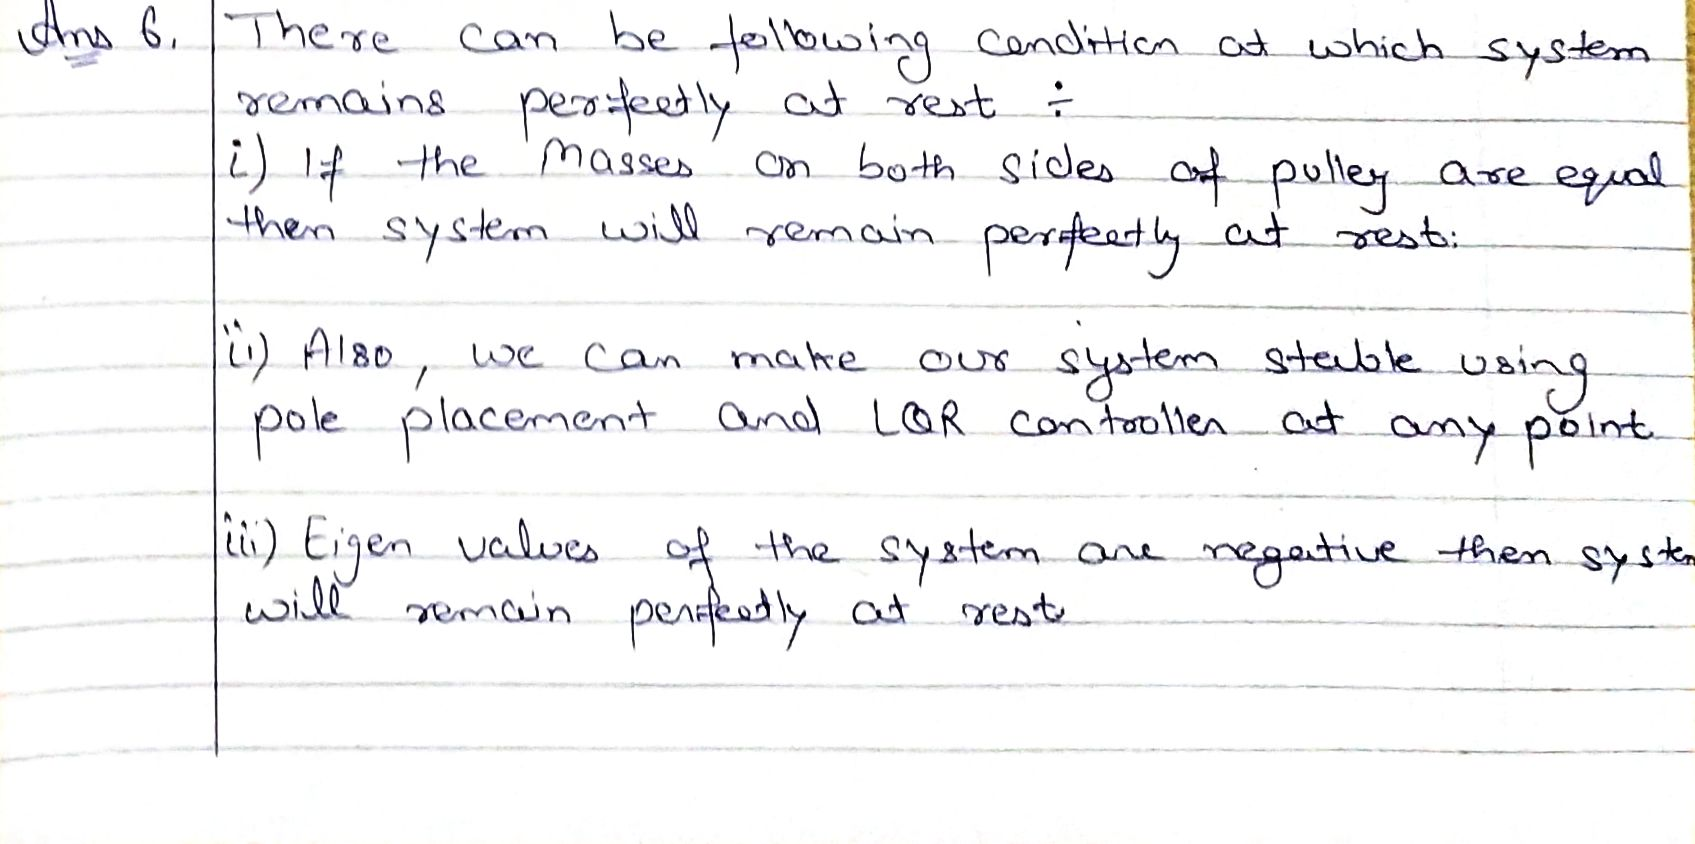 Ans 6. There can be following condition at which system
remains perfectly at rest ÷
i) If the masses on both sides of pulley are equal
then system will remain perfectly at rest.
ii) Also, we can make our system stable using
pole placement and LQR controller at any point
iii) Eigen values of the system are negative then system
will remain perfectly at rest